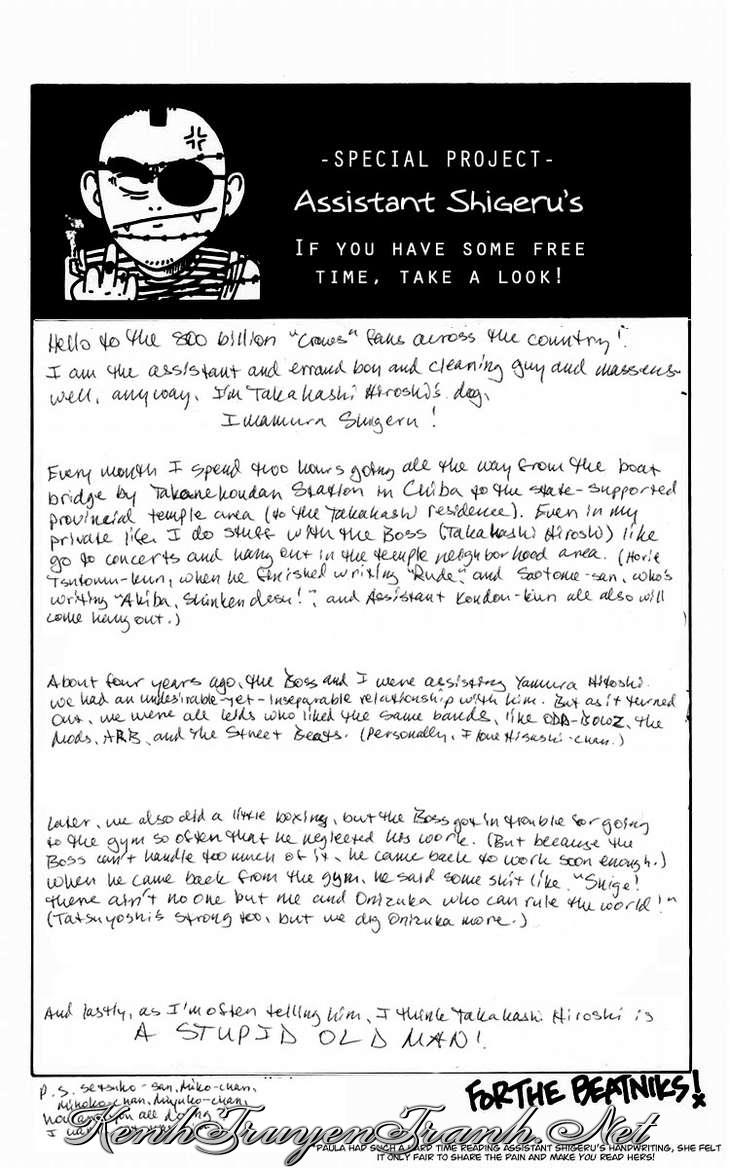 -SPECIAL PROJECT-
Assistant Shigeru's
IF YOU HAVE SOME FREE
TIME, TAKE A LOOK!
Hello to the 800 billion "Crows" fans across the country!
I am the assistant and errand boy and cleaning guy and
well, anyway, I'm Takahashi Hiroshi's dog,
Imamura Shigeru!
Every month I spend two hours going all the way from the boat
bridge by Takanekoudan Station in Chiba to the state-supported
provincial temple area (to the Takahashi residence). Even in my
private life, I do stuff with the Boss (Takahashi Hiroshi) like
go to concerts and hang out in the temple neighborhood area. (Horie
Tsutomu-kun, when he finished writing "Rude," and Saotome-san, who's
writing "Akiba, Shinken desu!", and Assistant Kondou-kun all also will
come hang out.)
About four years ago, the Boss and I were assisting Yamura Hitoshi.
We had an undesirable-yet-inseparable relationship with him. But as it turned
out, we were all kids who liked the same bands, like the
Mods, ARB, and the Street Beats. (Personally, I love Hisashi-chan.)
Later, we also did a little boxing, but the Boss got in trouble for going
to the gym so often that he neglected his work. (But because the
Boss can't handle too much of it, he came back to work soon enough.)
When he came back from the gym, he said some shit like, "Shige!
There ain't no one but me and Onizuka who can rule the world!"
(Tatsuyoshi's strong too, but we dig Onizuka more.)
And lastly, as I'm often telling him, I think Takahashi Hiroshi is
A STUPID OLD MAN!
P.S. Setsuko-san, Miko-chan,
FOR THE BEATNIKS!
KenhTruyenTranh.Net
PAULA HAD SUCH A HARD TIME READING ASSISTANT SHIGERU'S HANDWRITING, SHE FELT
IT ONLY FAIR TO SHARE THE PAIN AND MAKE YOU READ HERS!